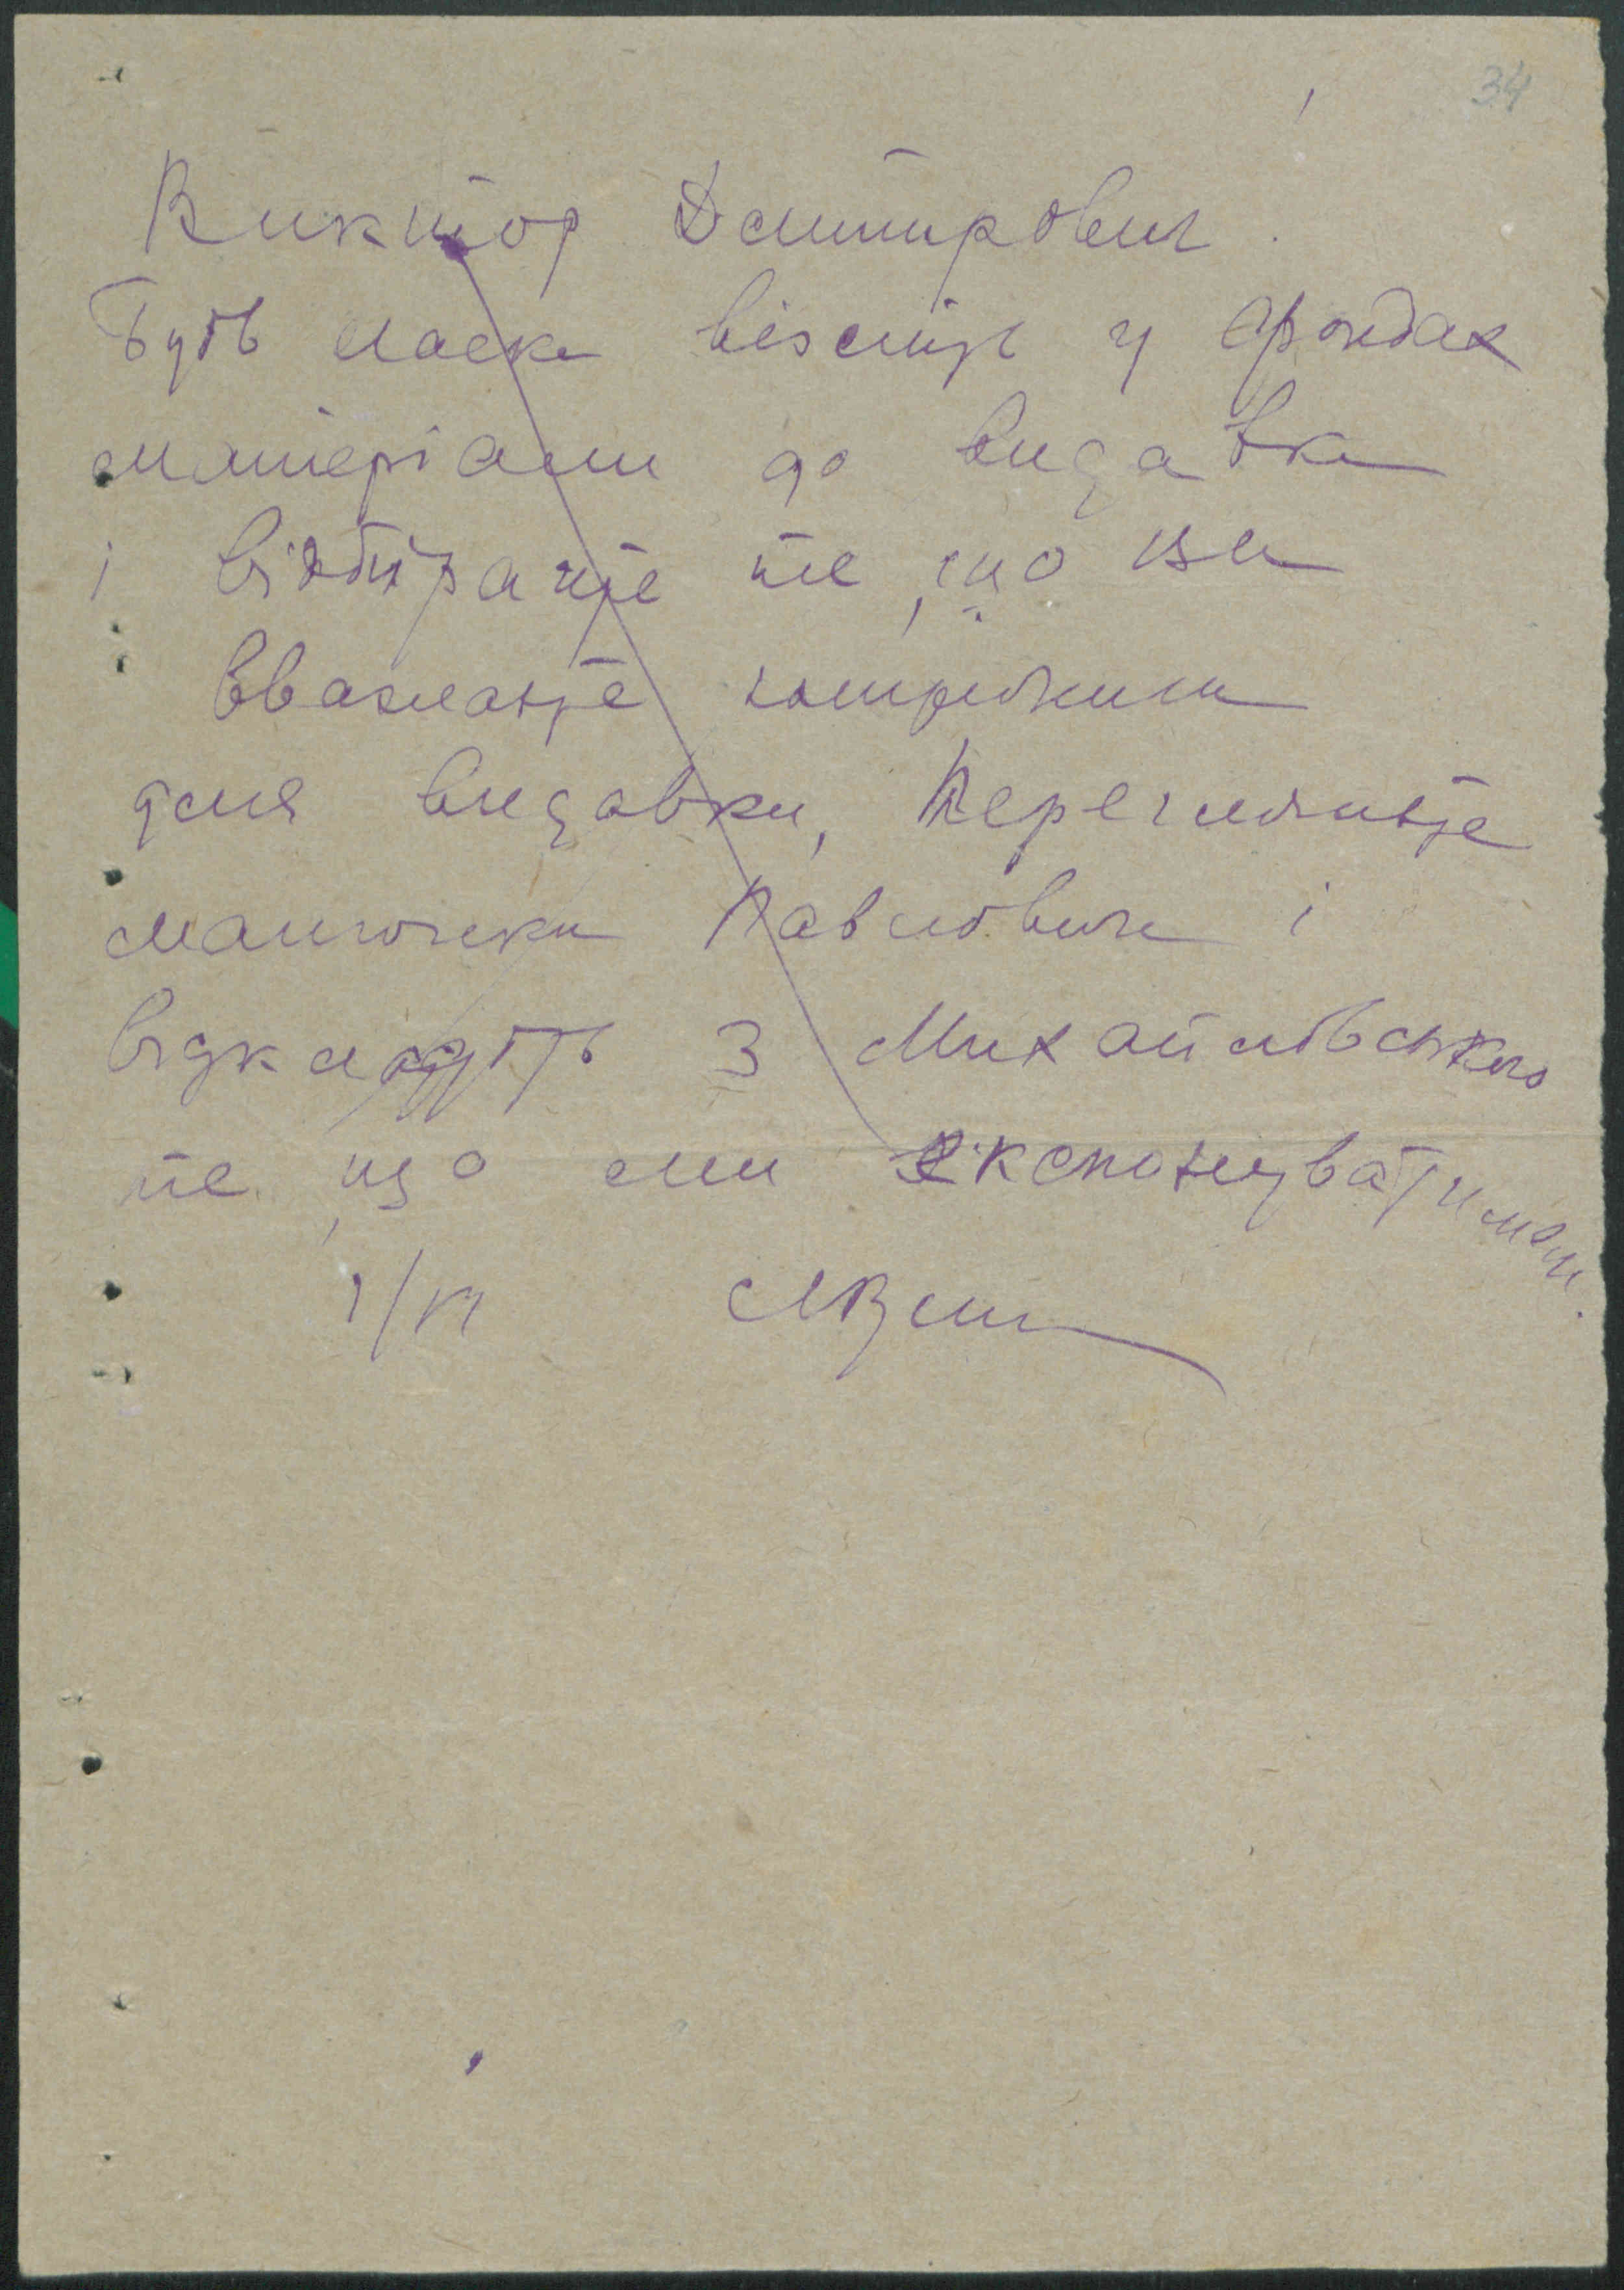 34
Виктор Дмитрович.
Будь ласка візміть у фондах
матеріали до видавки
і відбірайте те, що ви
вважаєте потрібним
для видавки, перегляньте
малюнки Павловича і
відкладіть з Михайлівського
те, що ми експонуватимем.
1/VI